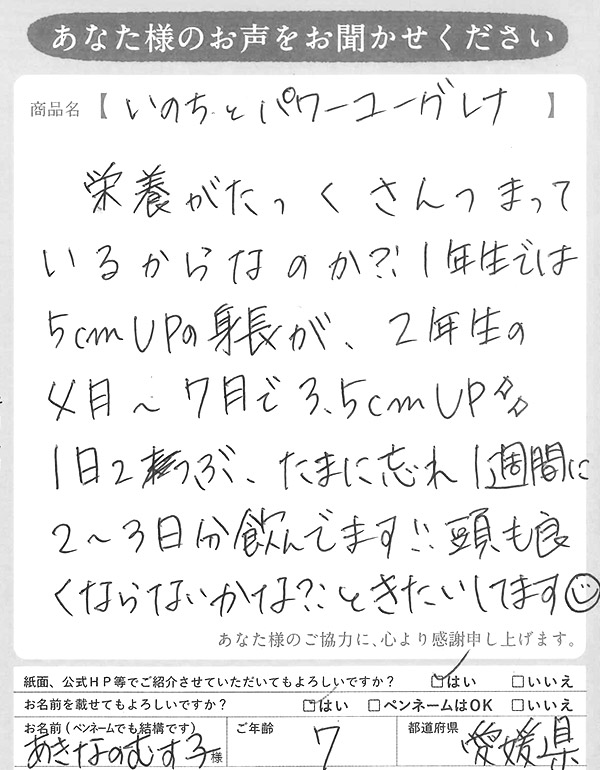 あなた様のお声をお聞かせください
商品名【 いのちとパワーユーグレナ 】
栄養がたっくさんつまって
いるからなのか?! 1年生では
5cmUPの身長が、2年生の
4月〜7月で3.5cmUP
1日2つぶ、たまに忘れ1週間に
2〜3日分飲んでます!! 頭も良
くならないかな?!ときたいしてます☺
あなた様のご協力に、心より感謝申し上げます。
紙面、公式HP等でご紹介させていただいてもよろしいですか? ☑はい □いいえ
お名前を載せてもよろしいですか? ☑はい □ペンネームはOK □いいえ
お名前(ペンネームでも結構です) ご年齢 都道府県
あきなのむす子 様 7 愛媛県